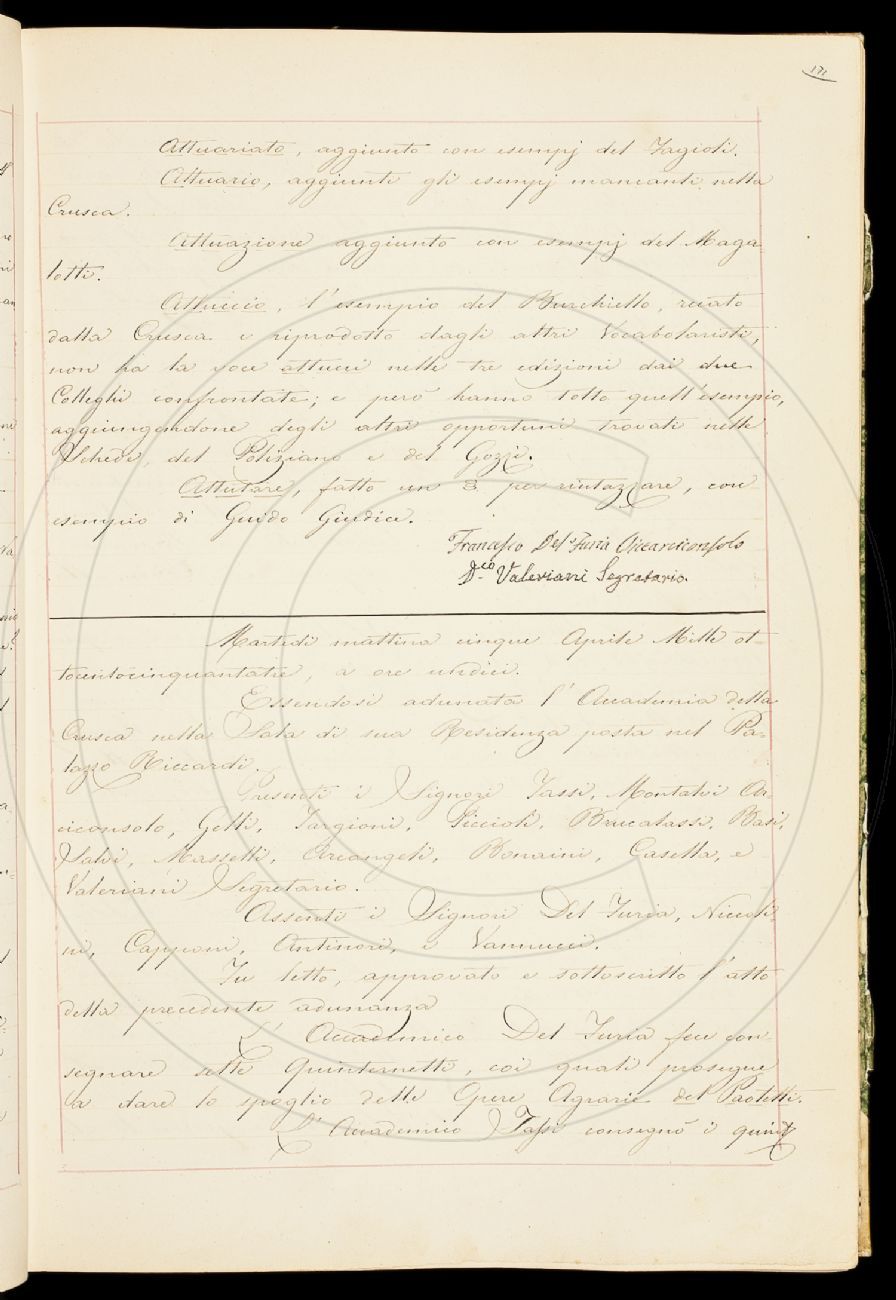 171
Attuariato, aggiunto con esempj del Fagioli.
Attuario, aggiunti gli esempj mancanti nella
Crusca.
Attuazione aggiunto con esempj del Maga-
lotti.
Attuccio, l'esempio del Burchiello, recato
dalla Crusca e riprodotto dagli altri Vocabolaristi,
non ha la voce attucci nelle tre edizioni dai due
Colleghi confrontate; e però hanno tolto quell'esempio,
aggiungendone degli altri opportuni trovati nelle
Schede, del Poliziano e del Gozzi.
Attutare, fatto un § per rintuzzare, con
esempio di Guido Giudice.
Francesco Del Furia Vicearciconsolo
D.co Valeriani Segretario.
Martedì mattina cinque Aprile Mille ot-
tocentocinquantatre, a ore undici.
Essendosi adunata l'Accademia della
Crusca nella Sala di sua Residenza posta nel Pa-
lazzo Riccardi.
Presenti i Signori Tassi, Montalvi Ar-
ciconsolo, Gelli, Targioni, Piccioli, Brucalassi, Basi,
Salvi, Masselli, Arcangeli, Bonaini, Casella, e
Valeriani Segretario.
Assenti i Signori Del Furia, Niccoli-
ni, Capponi, Antinori, e Vannucci.
Fu letto, approvato e sottoscritto l'atto
della precedente adunanza
L'Accademico Del Furia fece con-
segnare sette Quinternetti, coi quali prosegue
a dare lo spoglio delle Opere Agrarie del Paoletti.
L'Accademico Tassi consegnò i quint